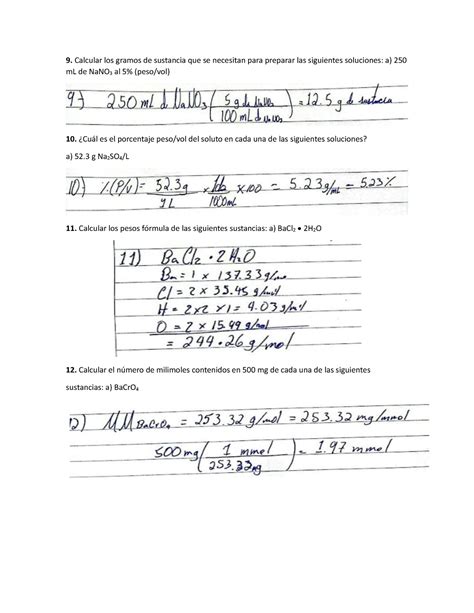 9. Calcular los gramos de sustancia que se necesitan para preparar las siguientes soluciones: a) 250
mL de NaNO₃ al 5% (peso/vol)
9) 250 mL d NaNO₃ (5 g d NaNO₃ / 100 mL d NaNO₃) = 12.5 g d sustancia
10. ¿Cuál es el porcentaje peso/vol del soluto en cada una de las siguientes soluciones?
a) 52.3 g Na₂SO₄/L
10) %(P/V) = 52.3g / 1L × 1L / 1000mL × 100 = 5.23 g/mL = 5.23%
11. Calcular los pesos fórmula de las siguientes sustancias: a) BaCl₂ • 2H₂O
11) BaCl₂ • 2H₂O
Ba = 1 × 137.33 g/mol
Cl = 2 × 35.45 g/mol
H = 2×2 ×1 = 4.03 g/mol
O = 2 × 15.99 g/mol
= 244.26 g/mol
12. Calcular el número de milimoles contenidos en 500 mg de cada una de las siguientes
sustancias: a) BaCrO₄
12) MM BaCrO₄ = 253.32 g/mol = 253.32 mg/mmol
500 mg (1 mmol / 253.32mg) = 1.97 mmol